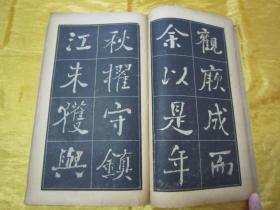 觀厥成而
余以是年
秋擢守鎮
江未獲與